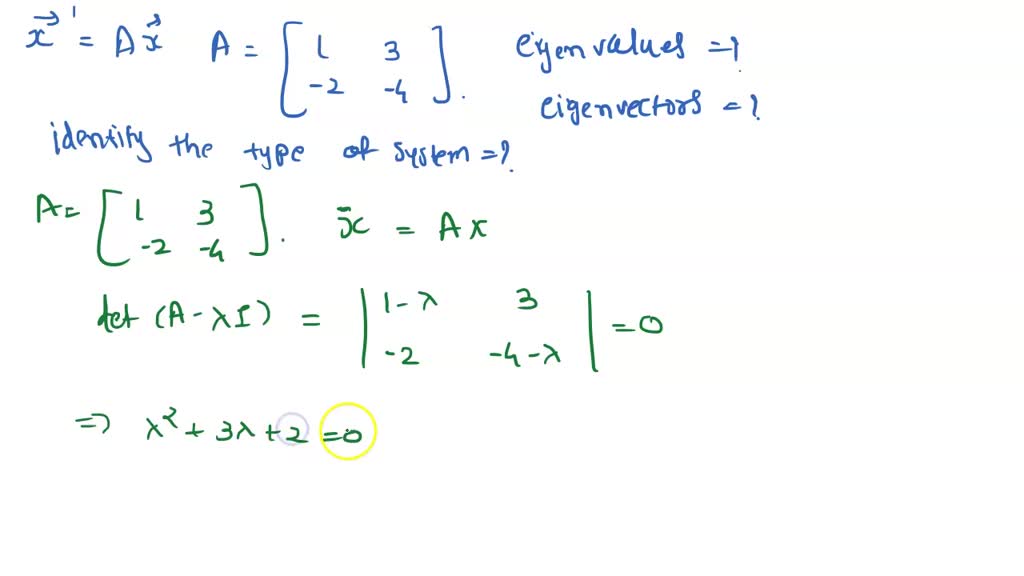 x⃗' = Ax⃗ A = [ 1 3 eigenvalues = ?
-2 -4 ]. eigenvectors = ?
identify the type of system = ?
A = [ 1 3
-2 -4 ]. x̄ = Ax
det (A - λI) = | 1-λ 3 | = 0
-2 -4-λ
⇒ λ² + 3λ + 2 = 0